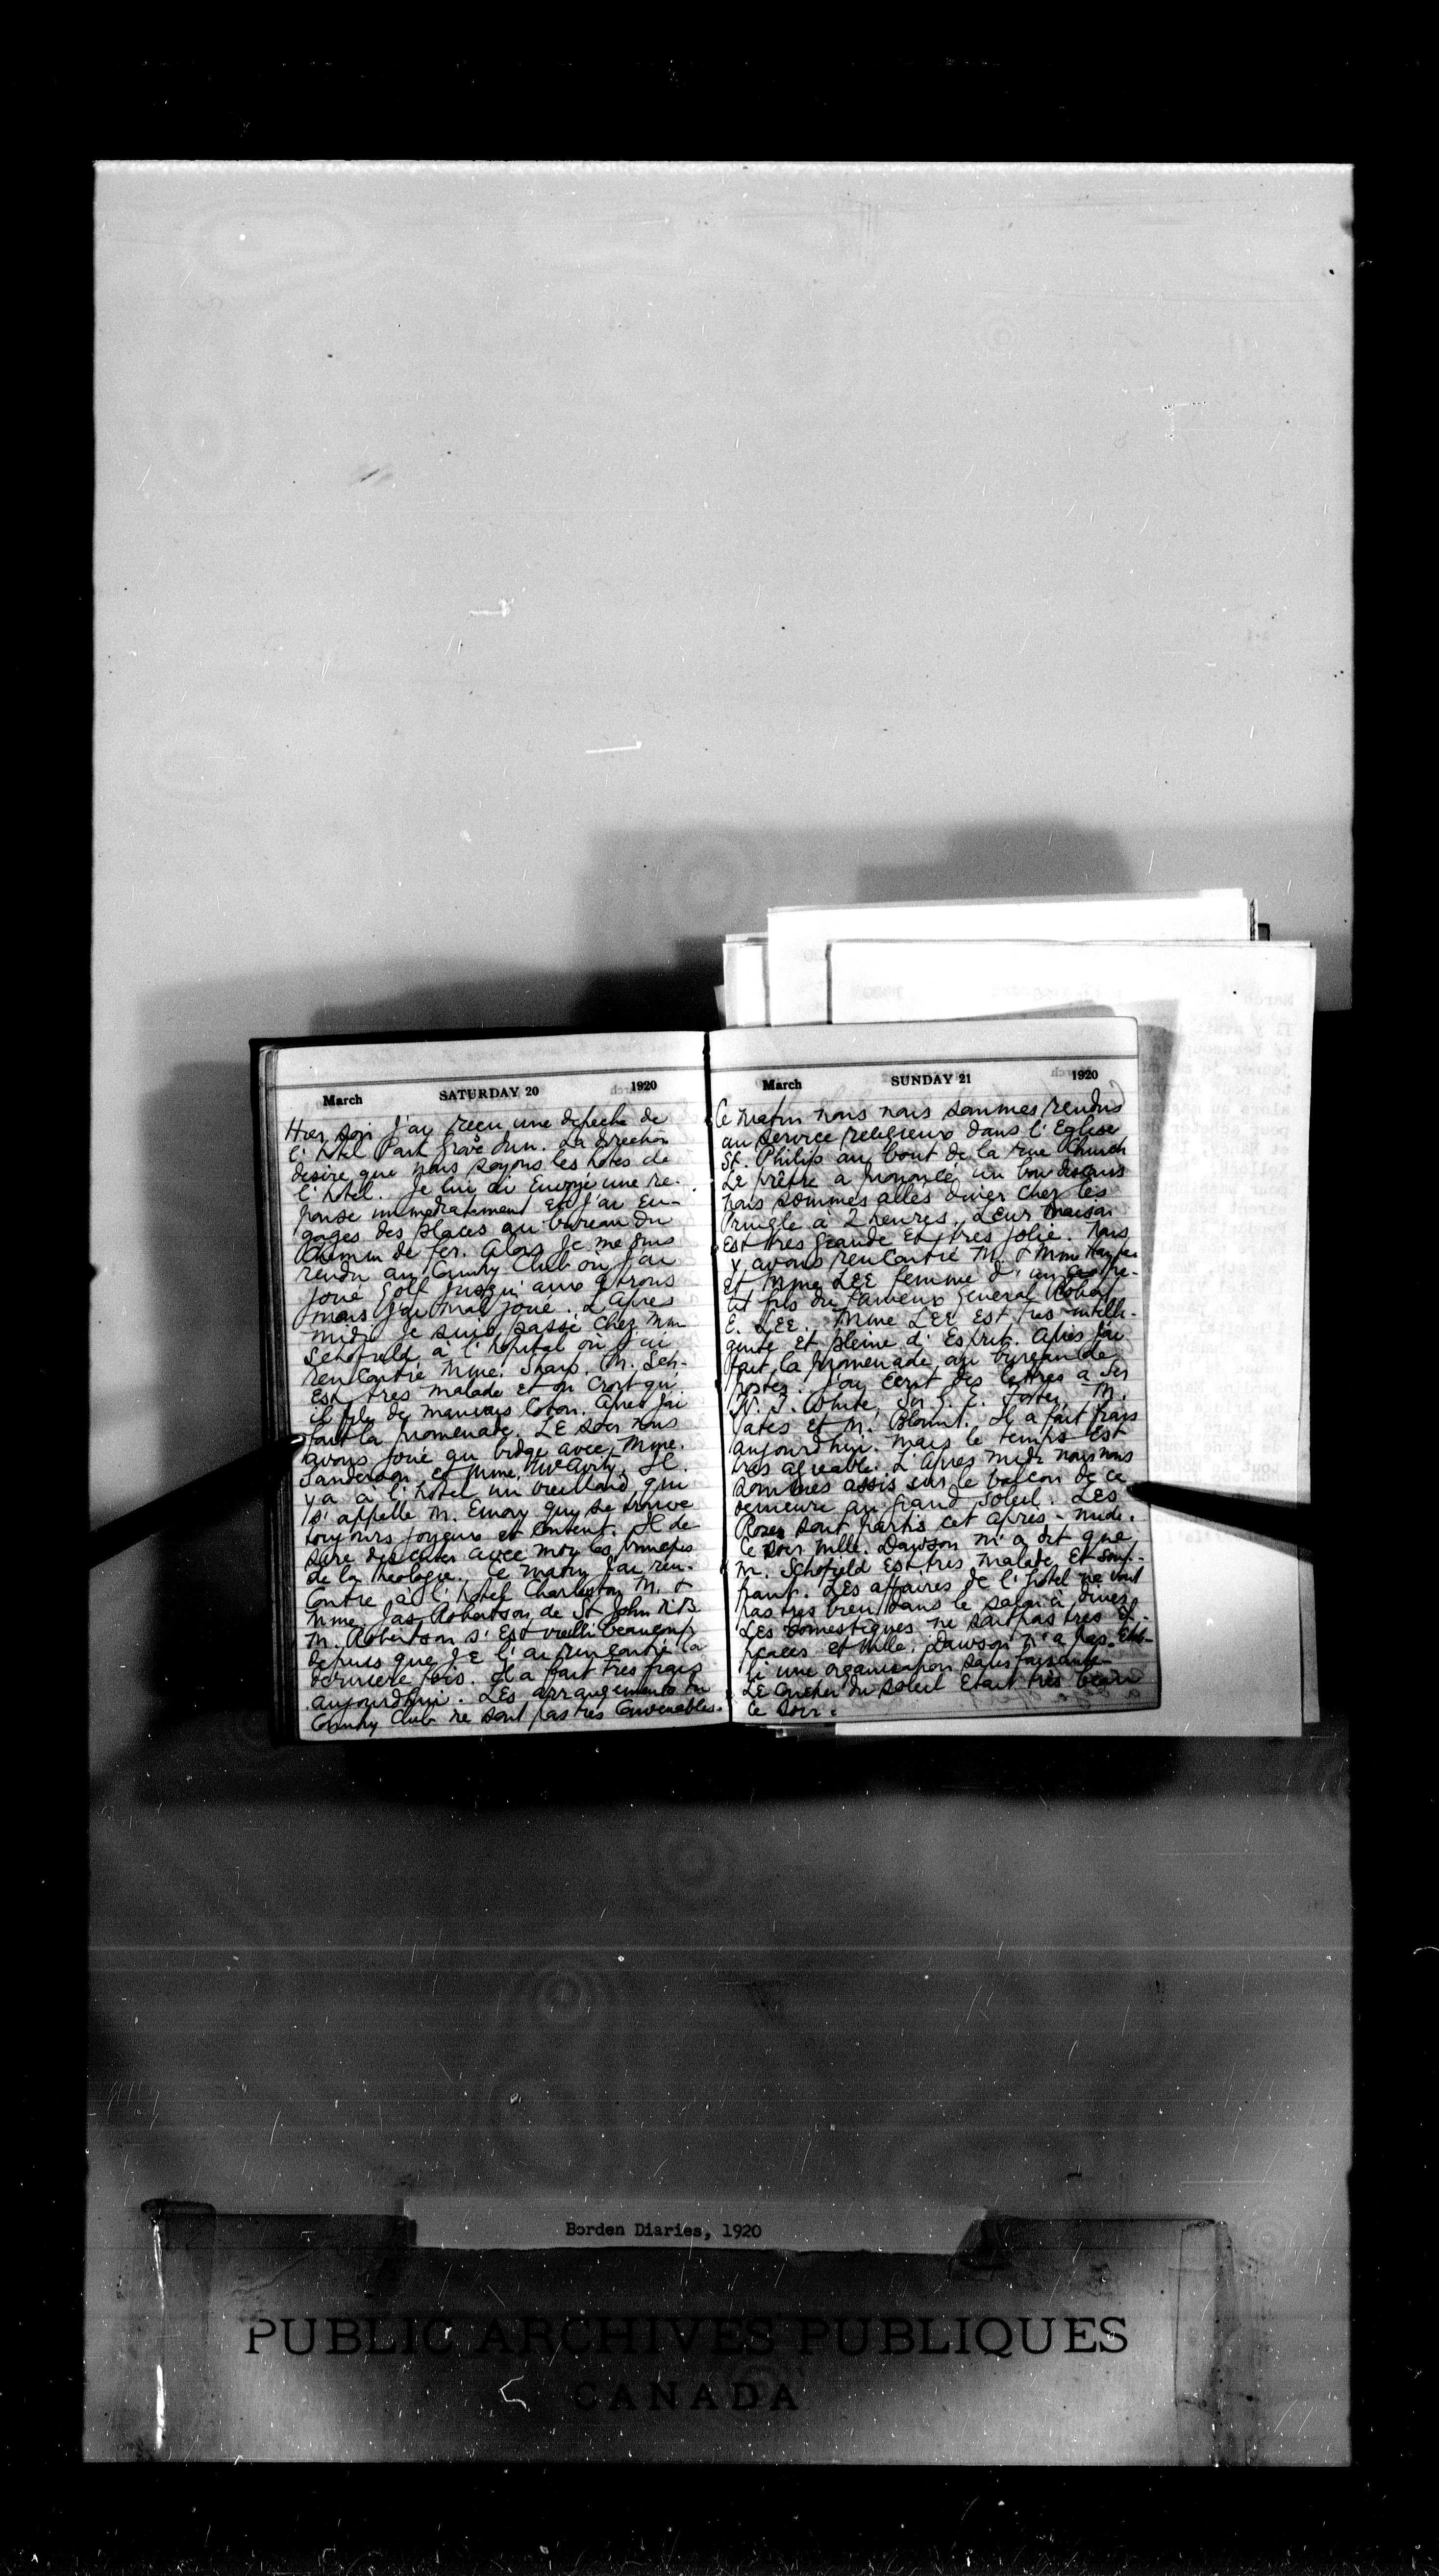 March SATURDAY 20 1920
Hier soir j'ai reçu une depeche de
l'hotel Park Grove Inn. La direction
desire que nous soyons les hotes de
l'hotel. Je lui ai Envoyé une re-
ponse immediatement et j'ai en-
gagés des places au bureau du
Chemin de fer. Alors je me suis
rendu au Country Club où j'ai
joué Golf jusqu'aux 9 trous
mais j'ai mal joué. L'apres
midi je suis passé chez Mme
Schofield à l'hôpital où j'ai
rencontré Mme. Sharp. M. Sch-
est tres malade et on croit qu'
il file de mauvais coton. Apres j'ai
fait la promenade. LE soir nous
avons joué au bridge avec Mme.
Sanderson et Mme. McAvity. Il
y a à l'hotel un vieillard qui
s'appelle M. Emory qui se trouve
toujours joyeux et content. Il de-
sire discuter avec moi les principes
de la theologie. Ce matin j'ai ren-
contré à l'hotel Charleston M. &
Mme Jas. Robertson de St John N.B.
M. Robertson s'Est vieilli beaucoup
depuis que JE l'ai rencontré la
derniere fois. Il a fait tres frais
aujourdhui. LEs arrangements du
Country Club ne sont pas tres Convenables.
March SUNDAY 21 1920
Ce matin nous nous sommes rendus
au service religieux dans l'Eglise
St. Philip au bout de la rue Church
Le prêtre a prononcé un bon discours
nous sommes allés diner chez les
Pringle à 2 heures. Leur maison
Est tres grande Et tres jolie. Nous
y avons rencontré M. & Mme
Et Mme LEE femme d'un
tit fils du fameux General Robert
E. LEE. Mme LEE Est tres intelli-
gente et pleine d'Esprit. Apres j'ai
fait la promenade au bureau de
postes. J'ai Ecrit des lettres a Sir
W. T. White, Sir G. E. Foster, M.
Yates et M. Blount. Il a fait frais
aujourdhui. mais le temps Est
tres agreable. L'apres midi nous nous
sommes assis sur le balcon de ce
demeure au grand soleil. LEs
Roses sont partis cet apres-midi.
Ce soir Mlle. Dawson m'a dit que
M. Schofield Est tres malade Et souf-
frant. LEs affaires de l'hotel ne vont
pas tres bien dans le salon à diner
LEs domestiques ne sont pas tres Ef-
ficaces et Mlle. Dawson n'a pas Etab-
li une organisation satisfaisante
LE coucher du soleil Etait très beau
ce soir.
Borden Diaries, 1920
PUBLIC ARCHIVES PUBLIQUES
CANADA